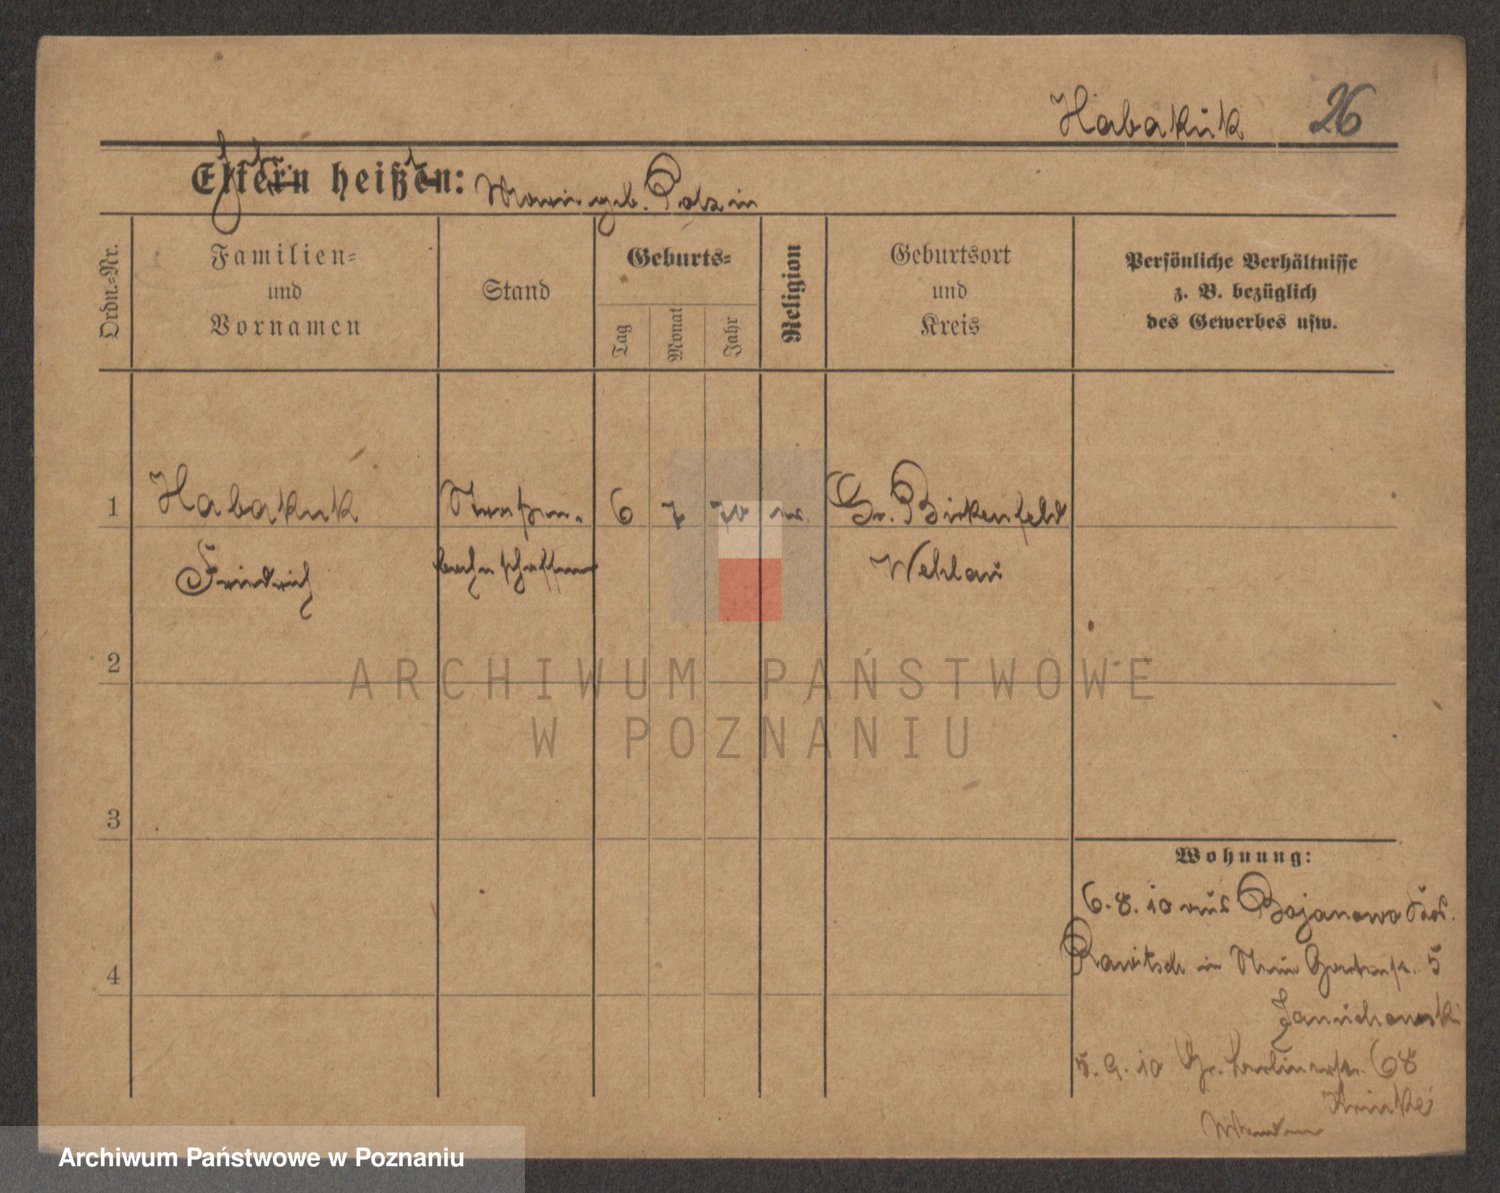 Habakuk 26
Eltern heißen: Marie geb. Polzin
Ordn.-Nr.
Familien-
und
Vornamen
Stand
Geburts-
Tag
Monat
Jahr
Religion
Geburtsort
und
Kreis
Persönliche Verhältnisse
z. B. bezüglich
des Gewerbes usw.
1 Habakuk Straßen- 6 7 70 ev. Gr. Birkenfeld
Friedrich bahnschaffner Wehlau
2
3
4
Wohnung:
6.8.10 aus Bojanowo
Rawitsch in Gartenstr. 5
Januchowski
5.9.10 Gr. Berlinerstr. 68
ARCHIWUM PAŃSTWOWE
W POZNANIU
Archiwum Państwowe w Poznaniu